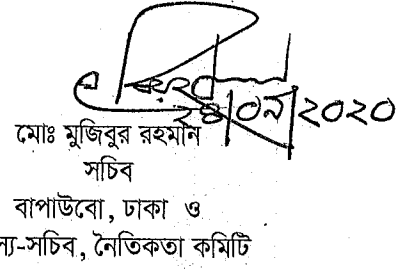 ২৪|০৯|২০২০
মোঃ মুজিবুর রহমান
সচিব
বাপাউবো, ঢাকা ও
স্য-সচিব, নৈতিকতা কমিটি